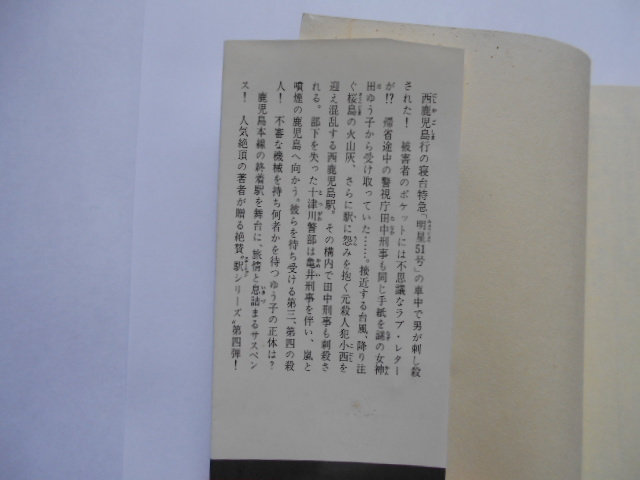 西鹿児島行の寝台特急「明星51号」の車中で男が刺し殺
された！　被害者のポケットには不思議なラブ・レター
が!?　帰省途中の警視庁田中刑事も同じ手紙を謎の女神
田ゆう子から受け取っていた……。接近する台風、降り注
ぐ桜島の火山灰、さらに駅に怨みを抱く元殺人犯小西を
迎え混乱する西鹿児島駅。その構内で田中刑事も刺殺さ
れる。部下を失った十津川警部は亀井刑事を伴い、嵐と
噴煙の鹿児島へ向かう。彼らを待ち受ける第三、第四の殺
人！　不審な機械を持ち何者かを待つゆう子の正体は？
鹿児島本線の終着駅を舞台に、旅情と息詰まるサスペン
ス！　人気絶頂の著者が贈る絶賛〝駅シリーズ〟第四弾！